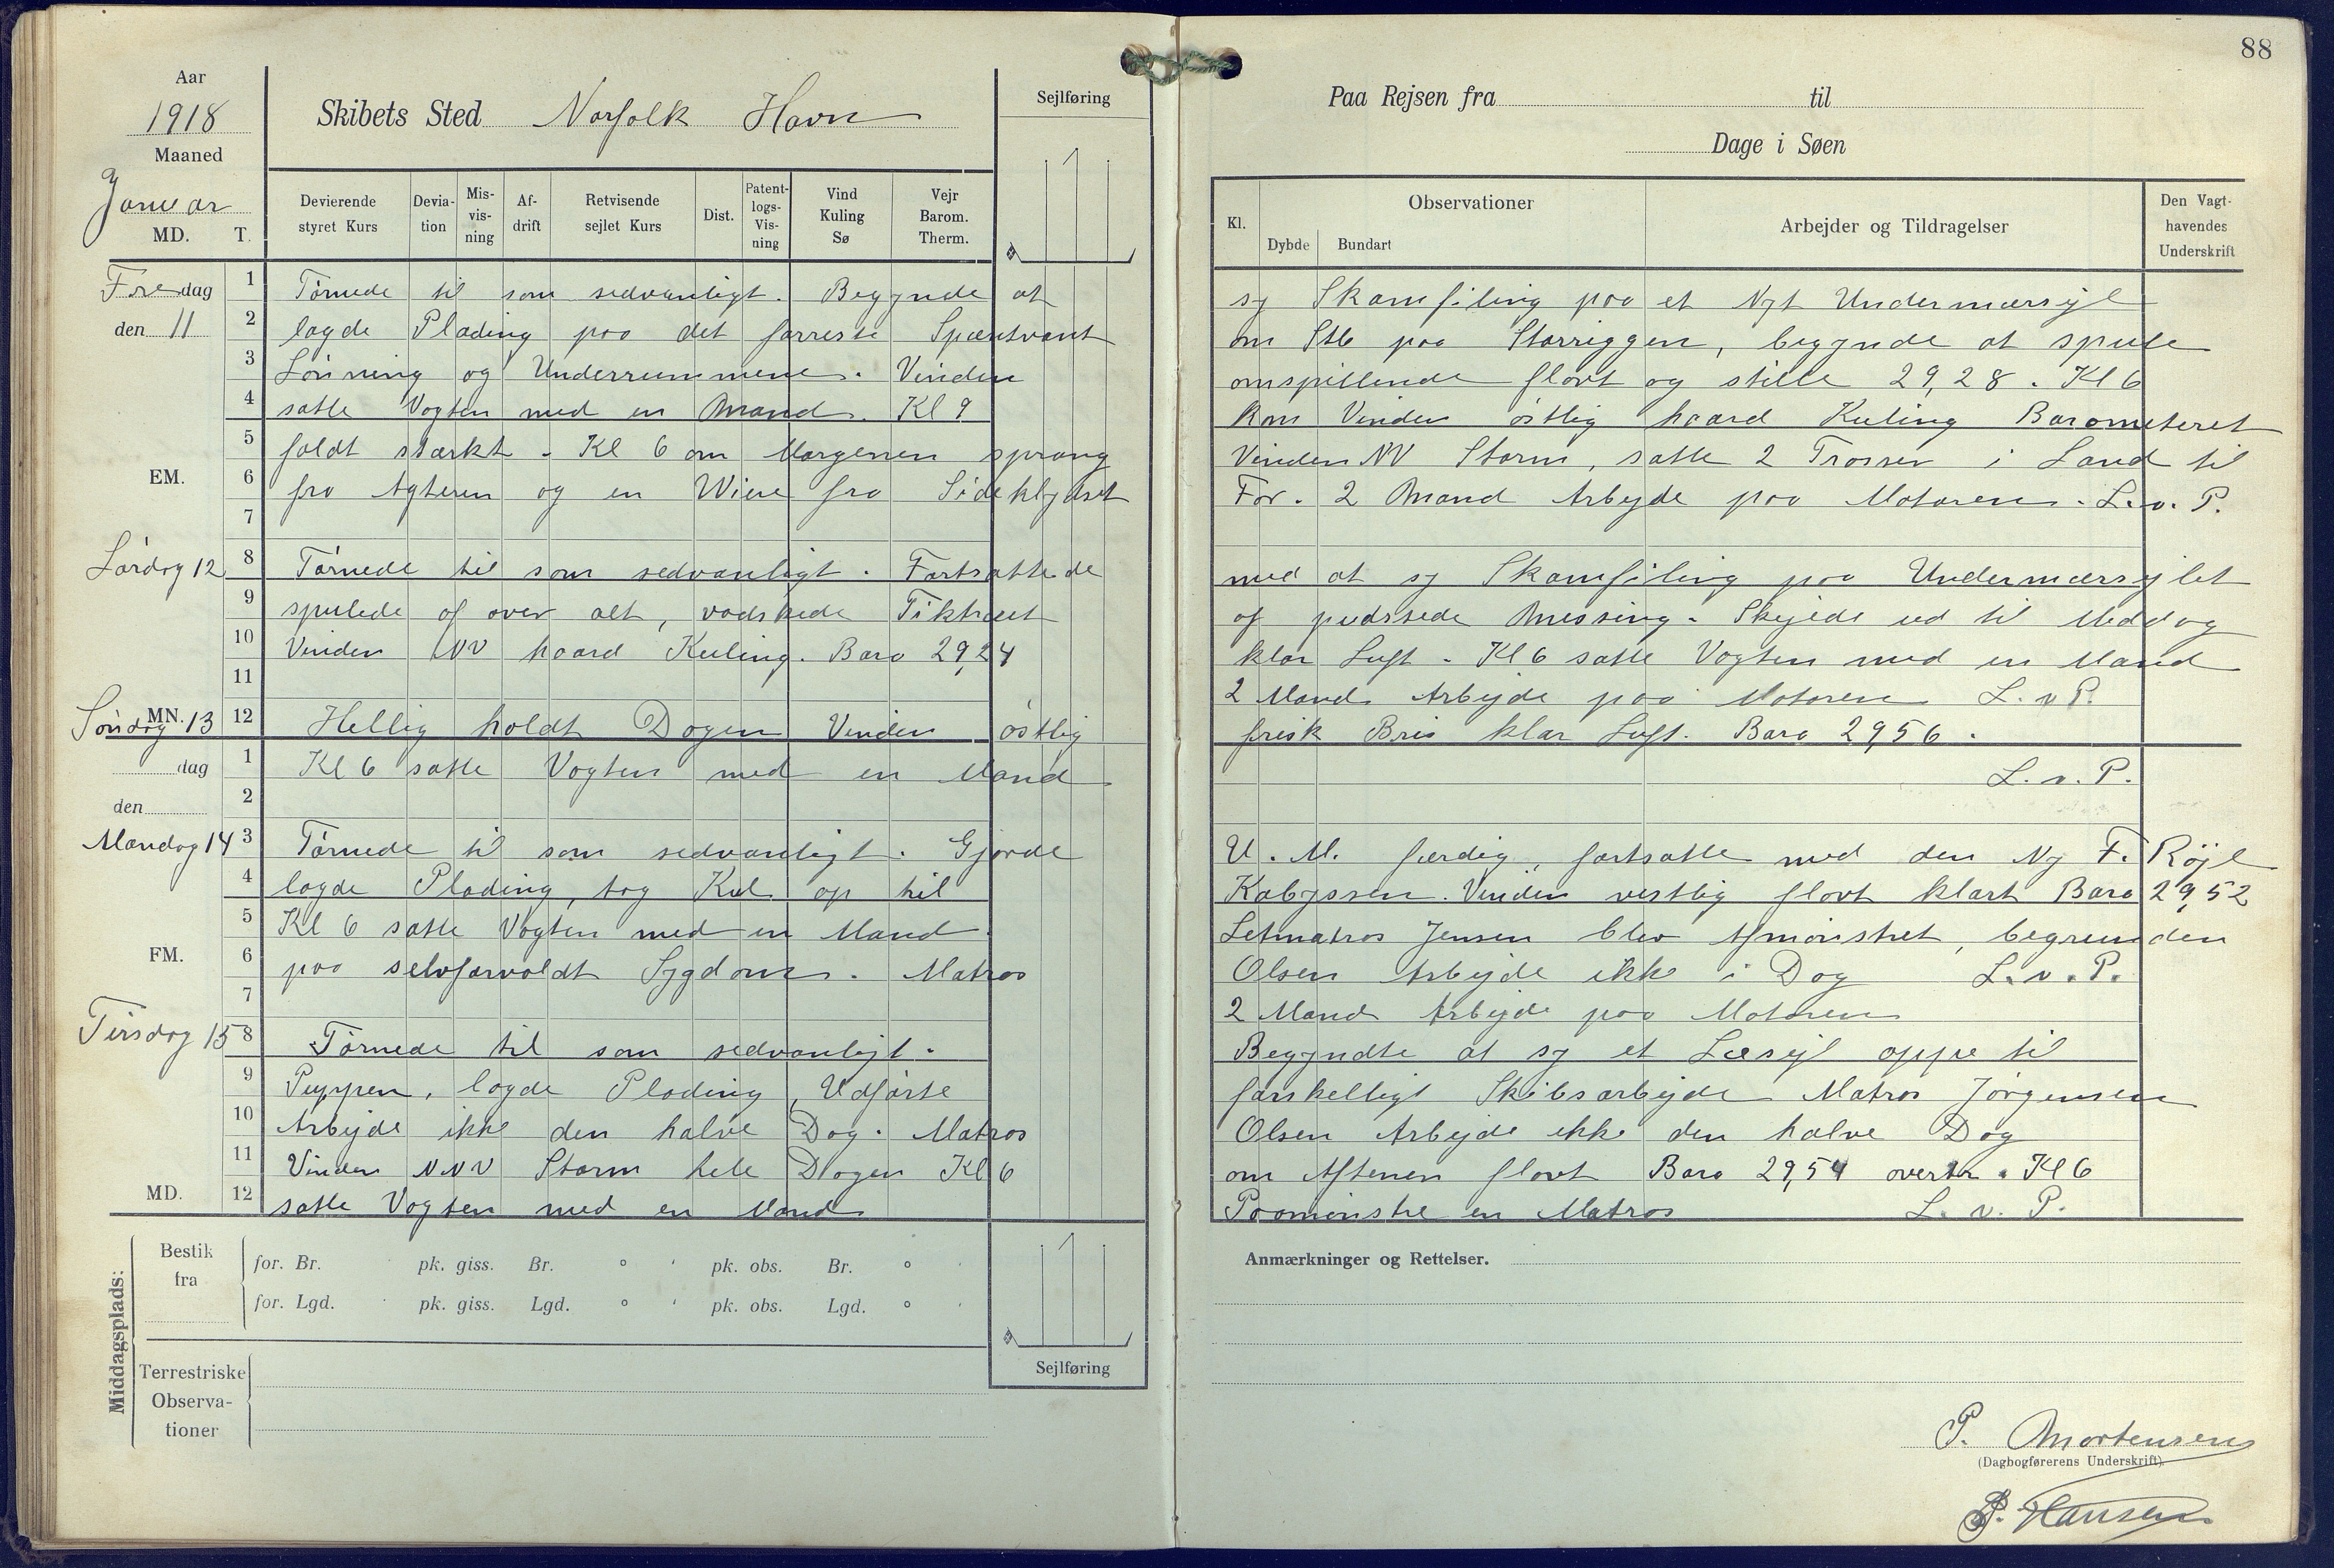 88
Aar
1918
Maaned
Januar
MD. T.
Skibets Sted Norfolk Havn
Sejlføring
Paa Rejsen fra til
Dage i Søen
Devierende styret Kurs
Devia-tion
Mis-vis-ning
Af-drift
Retvisende sejlet Kurs
Dist.
Patent-logs-Vis-ning
Vind Kuling Sø
Vejr Barom. Therm.
Kl.
Observationer
Dybde Bundart
Arbejder og Tildragelser
Den Vagt-havendes Underskrift
Fredag
den 11
1 Tørnede til som sedvanligt. Begynde at sy Skamfiling paa et Nyt Undermærsejl
2 lagde Plading paa det forreste Spæntvant om Stb paa Storriggen, begynde at spule
3 Lønning og Underrummene. Vinden omspillende flovt og stille 29,28. Kl 6
4 satte Vagten med en Mand. Kl 9 kom Vinden østlig haard Kuling Barometeret
5 faldt stærkt. Kl 6 om Morgenen sprang Vinden NV Storm, satte 2 Trosser i Land til
EM.
6 fra Agteren og en Wiere fra Sideklydset For. 2 Mand Arbejde paa Motoren. L.v.P.
7
Lørdag 12
8 Tørnede til som sedvanligt. Fortsattede med at sy Skamfiling paa Undermærsejlet
9 spulede af over alt, vadskede Tiktræet og pudssede Messing. Skejede ud til Meddag
10 Vinden NV haard Kuling. Baro 29,24 klar Luft. Kl 6 satte Vagten med en Mand
11 2 Mand Arbejde paa Motoren L.v.P.
Søndag 13
MN.
12 Hellig holdt Dagen Vinden østlig frisk Bris klar Luft. Baro 29,56.
dag
1 Kl 6 satte Vagten med en Mand L.v.P.
den
2
Mandag 14
3 Tørnede til som sedvanligt. Gjørde U.M. færdig, fortsatte med den Ny F. Røjl
4 lagde Plading, tog Kul op til Kabyssen. Vinden vestlig flovt klart Baro 29,52
5 Kl 6 satte Vagten med en Mand. Letmatros Jensen blev Afmønstret, begrunden
FM.
6 paa selvforvoldt Sygdom. Matros Olsen Arbejde ikke i Dag L.v.P.
7 2 Mand Arbejde paa Motoren
Tirsdag 15
8 Tørnede til som sedvanligt. Begyndte at sy et Læsejl oppe til
9 Puppen, lagde Plading, Udførte forskelligt Skibsarbejde Matros Jørgensen
10 Arbejde ikke den halve Dag. Matros Olsen Arbejde ikke den halve Dag
11 Vinden NNV Storm hele Dagen Kl 6 om Aftenen flovt Baro 29,54 overtr. Kl 6
MD.
12 satte Vagten med en Mand Paamønstre en Matros L.v.P.
Middagsplads:
Bestik fra
for. Br. pk. giss. Br. ° ' pk. obs. Br. ° '
for. Lgd. pk. giss. Lgd. ° ' pk. obs. Lgd. ° '
Terrestriske Observa-tioner
Sejlføring
Anmærkninger og Rettelser.
P. Mortensen
(Dagbogførerens Underskrift).
P. Hansen